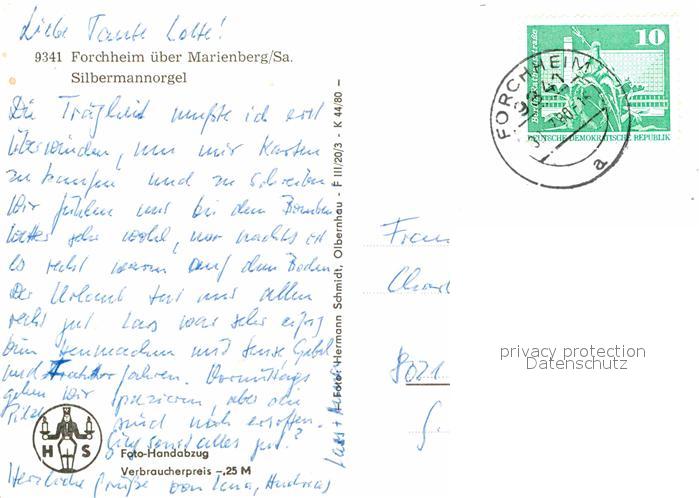 Liebe Tante Lotte!
9341 Forchheim über Marienberg/Sa.
Silbermannorgel
Die Trägheit mußte ich erst
überwinden, um mir Karten
zu kaufen und zu schreiben
Wir fühlen uns bei dem Bomben
wetter sehr wohl, nur nachts ist
es recht warm auf dem Boden
Der Urlaub tut uns allen
recht gut Lars war sehr eifrig
beim Heumachen mit Sense, Gabel
und Traktor fahren. Vormittags
gehen wir spazieren, aber die
Pilze sind noch ersoffen.
sonst alles gut?
Herzliche Grüße von Andreas
Lars +
H S
Foto-Handabzug
Verbraucherpreis -,25 M
Foto: Hermann Schmidt, Olbernhau - F III/20/3 - K 44/80 -
10
DEUTSCHE DEMOKRATISCHE REPUBLIK
FORCHHEIM
9341
a
Frau
8021
privacy protection
Datenschutz